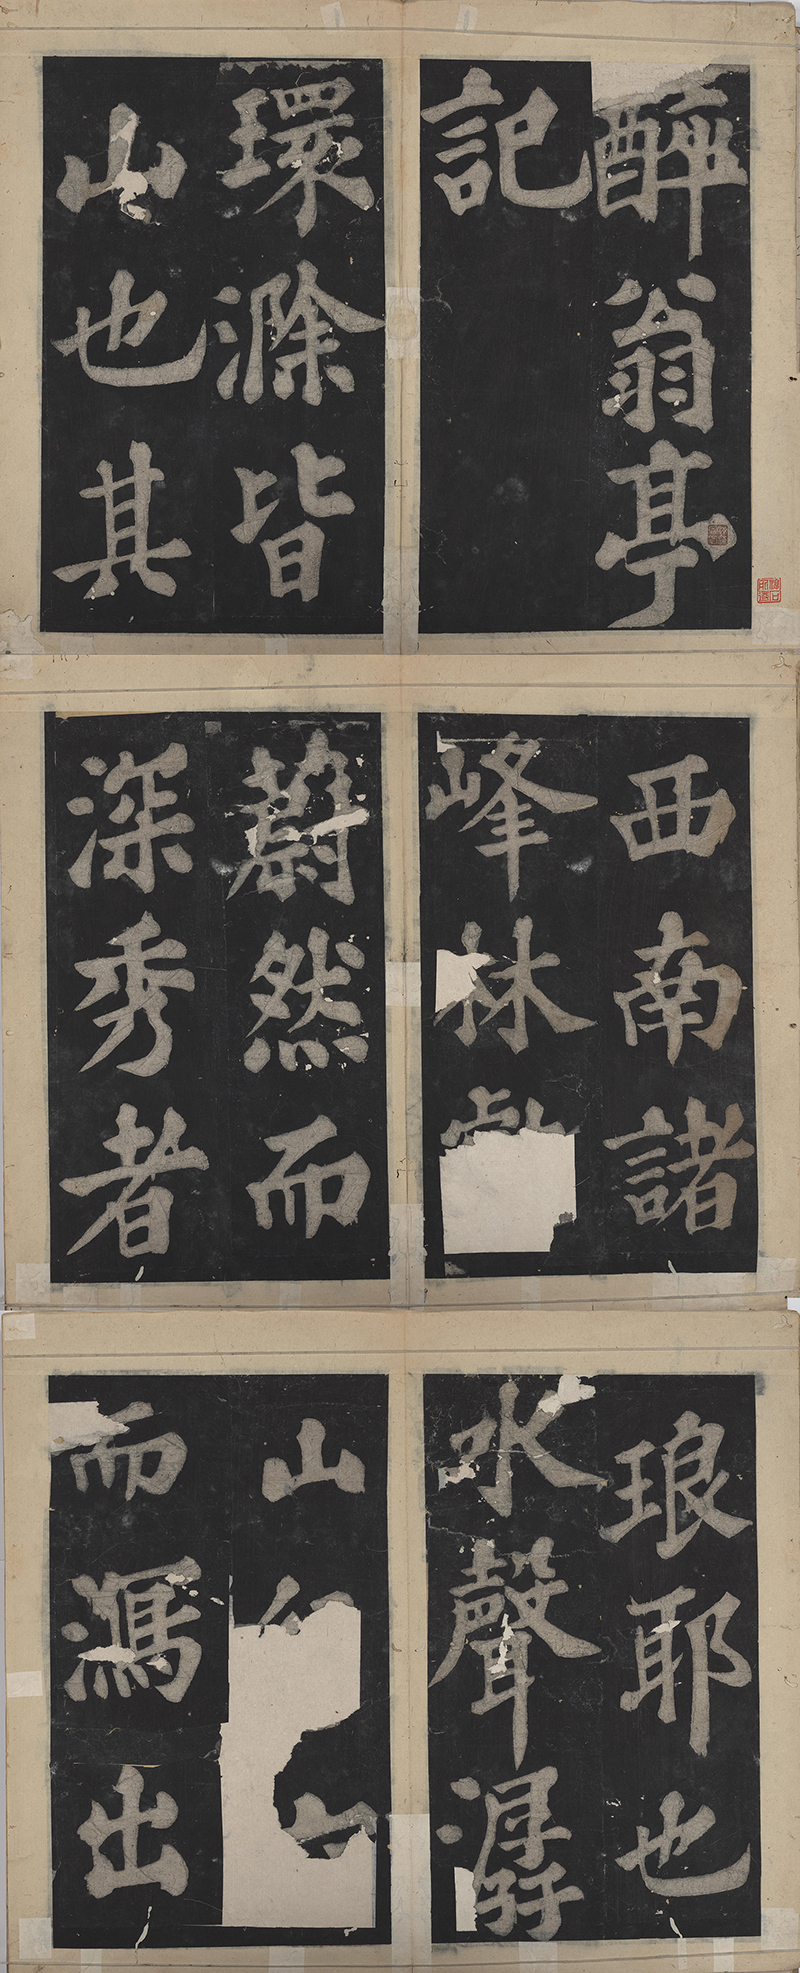 醉翁亭
記
環滁皆
山也其
西南諸
峰林
蔚然而
深秀者
琅耶也
水聲潺
山
而瀉出